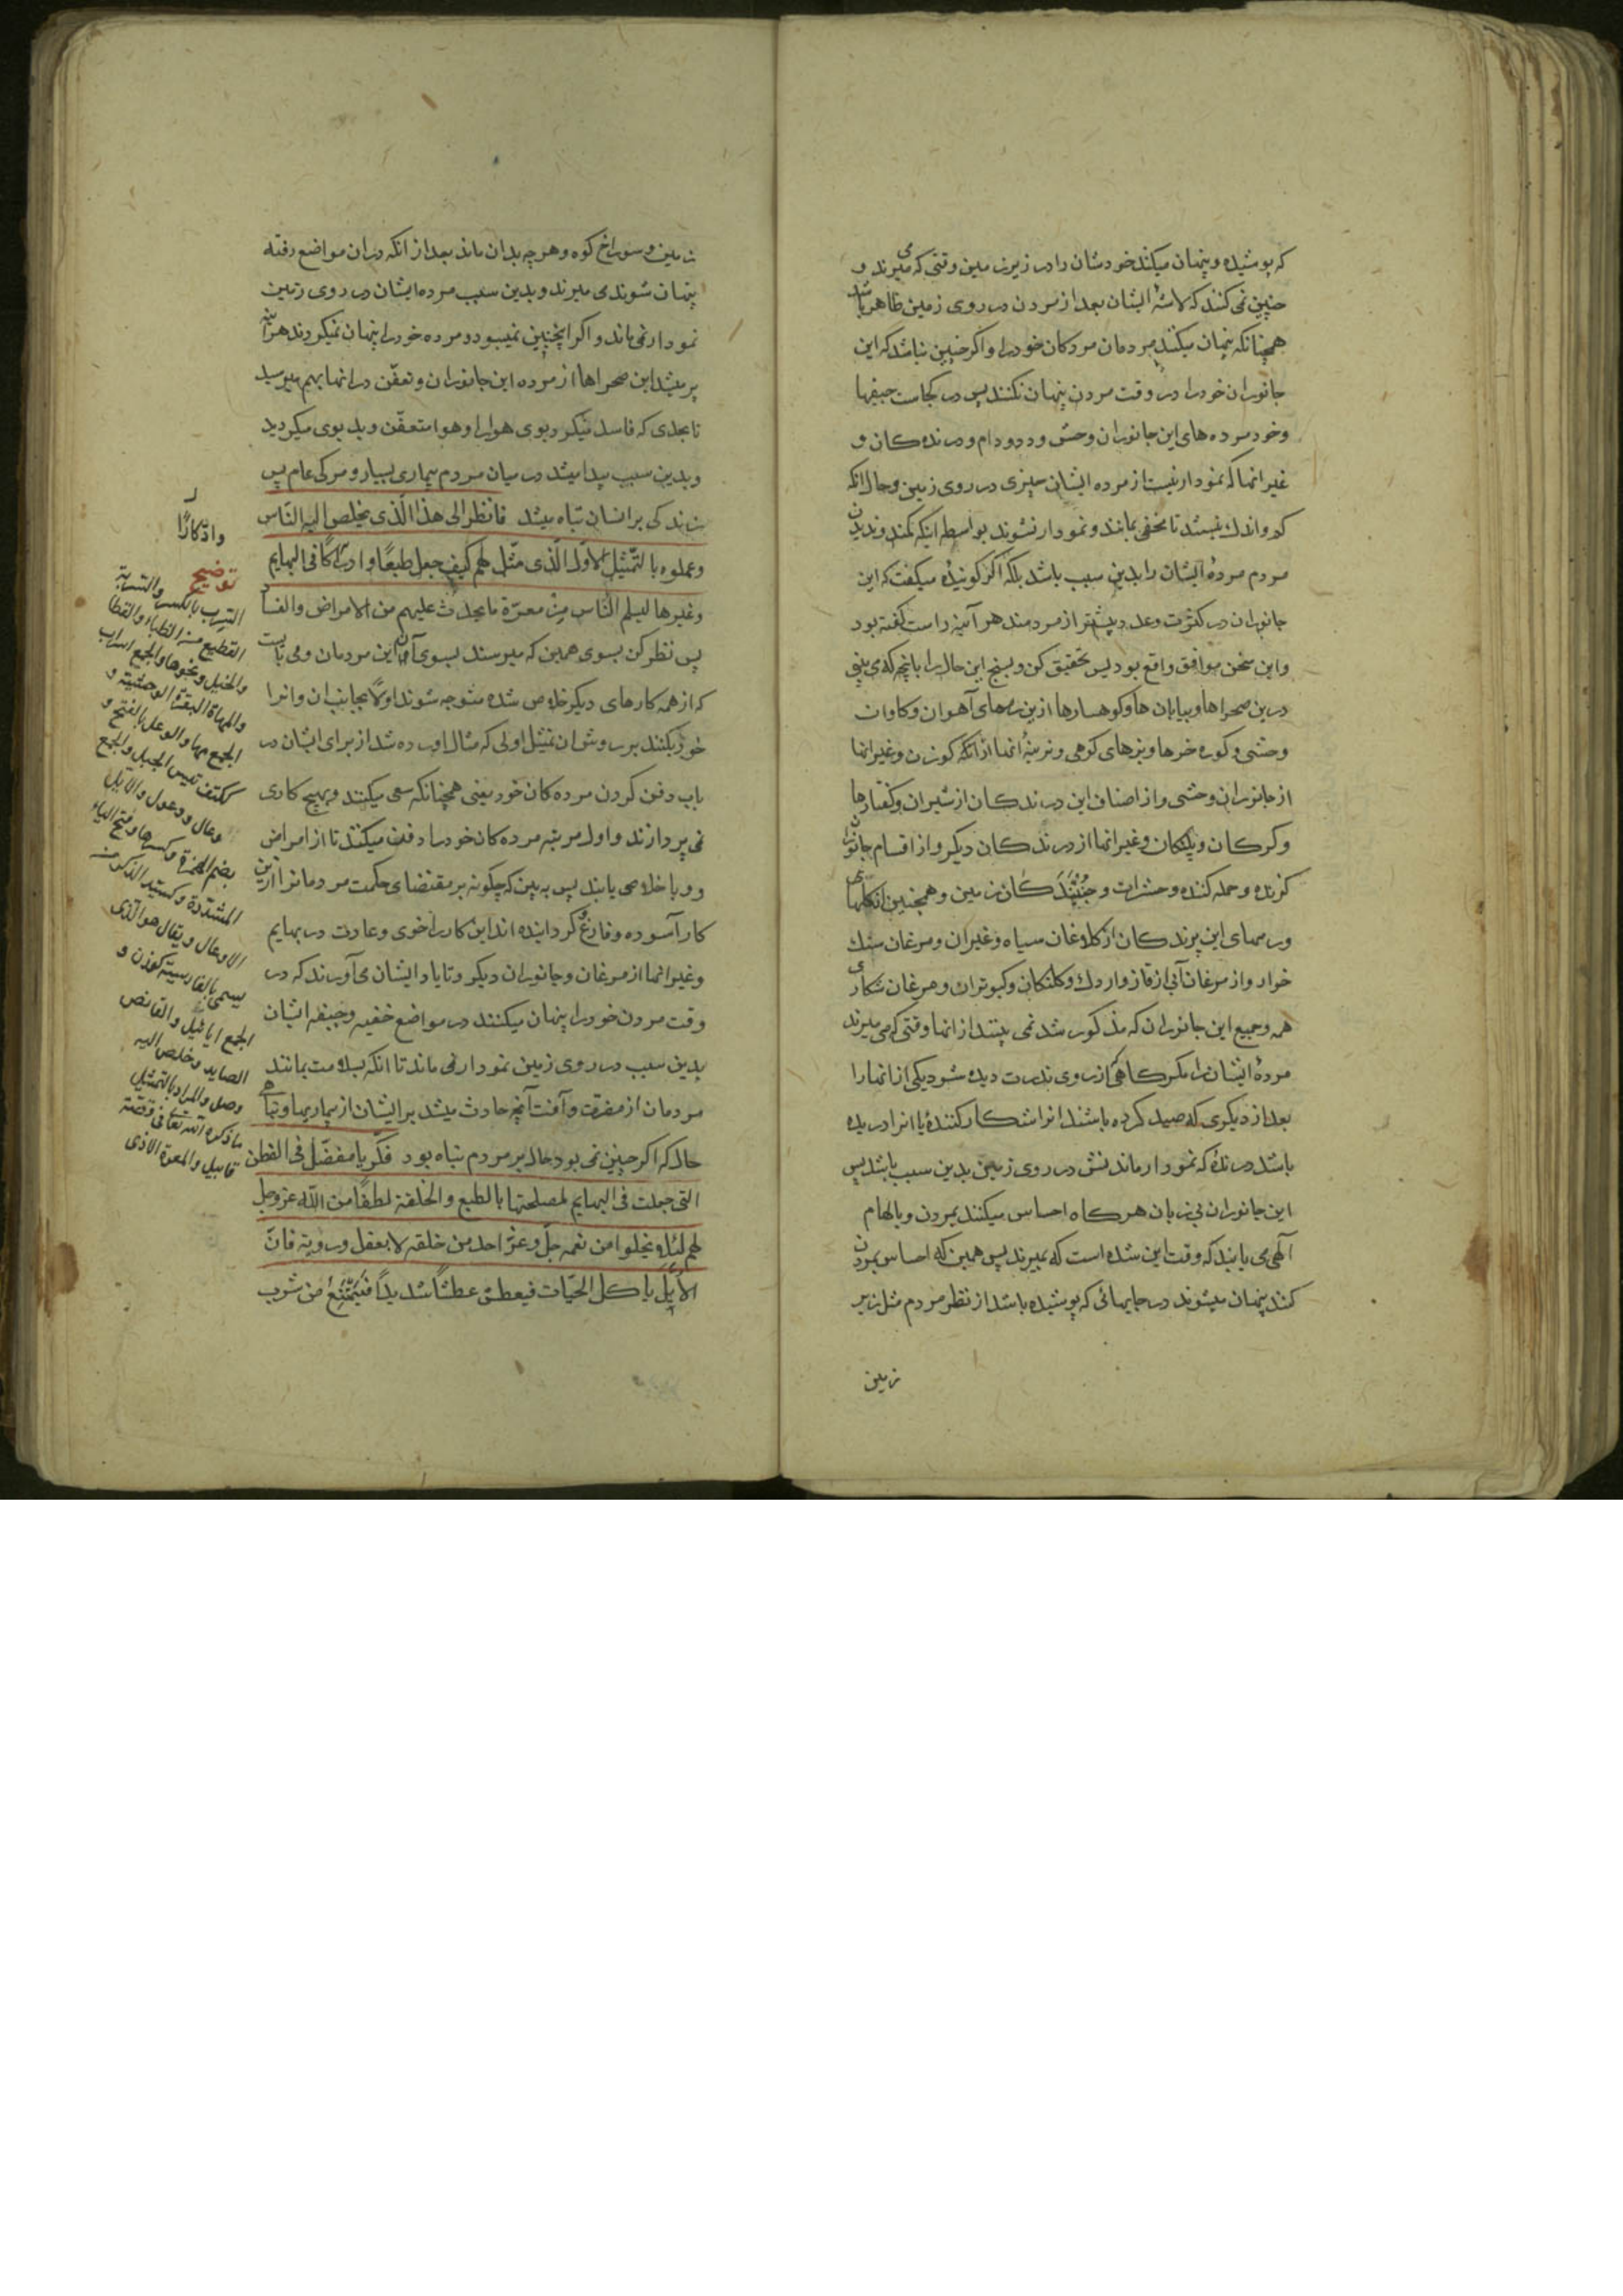 که پوشیده و پنهان میکند خودشان را در زیر زمین وقتی که می میرند و
چنین نمی کنند که لاشهٔ ایشان بعد از مردن در روی زمین ظاهر باشد
همچنانکه پنهان میکنند مردمان مردکان خود را و اکر چنین نباشد که این
جانوران خود را در وقت مردن پنهان نکنند پس در کجاست جیفها
و خود مرده های این جانوران وحش و دد و دام و درنده کان و
غیر انها که نمودار نیست از مرده ایشان چیزی در روی زمین و حال انکه
کم و اندك نیستند تا مخفی بمانند و نمودار نشوند بواسطه اینکه کمند و ندیدن
مردم مردهٔ ایشان را بدین سبب باشد بلکه اکر کویندهٔ میکفت که این
جانوران در کثرت و عدد بیشتر از مردمند هر آینه راست کفته بود
و این سخن موافق واقع بود پس تحقیق کن و بسنج این حال را بانچه که می بینی
درین صحراها و بیابان ها و کوهسارها ازین رمهای آهوان و کاوان
وحشی و کوره خرها و بزهای کوهی و نرینهٔ انها از انکه کوزن و غیر انها
از جانوران وحشی و از اصناف این درندکان از شیران و کفتارها
و کرکان و پلنکان و غیر انها از درندکان دیکر و از اقسام جانوران
کزنده و حمله کننده و حشرات و جُنبَندَکان زمین و همچنین از کلهای
و رمهای این پرندکان از کلاغان سیاه و غیر ان و مرغان سنك
خوار و از مرغان آبی از قاز و اردك و کلنکان و کبوتران و مرغان شکاری
همه و جمیع این جانوران که مذکور شد نمی بینند از انها وقتی که می میرند
مردهٔ ایشان را مکر کاهی از روی ندرت دیده شود یکی از انها را
بعد از دیکری که صید کرده باشند انرا شکار کنندهٔ یا انرا دریده
باشد درندهٔ که نمودار ماندنش در روی زمین بدین سبب باشد پس
این جانوران بی زبان هر کاه احساس میکنند بمردن و بالهام
آلهی می یابند که وقت این شده است که بمیرند پس همین که احساس بمردن
کنند پنهان میشوند در جایهائی که پوشیده باشد از نظر مردم مثل زیر
زمین
زمین و سوراخ کوه و هر چه بدان ماند بعد از انکه در ان مواضع رفته
پنهان شوند می میرند و بدین سبب مرده ایشان در روی زمین
نمودار نمی ماند و اکر اینچنین نمیبود و مرده خود را پنهان نمیکردند هر آینه
پر میشد این صحراها از مرده این جانوران و تعفّن در انها بهم میرسید
تا بحدی که فاسد میکرد بوی هوا را و هوا متعفّن و بد بوی میکردید
و بدین سبب پیدا میشد در میان مردم بیماری بسیار و مرکی عام پس
زندکی بر انسان تباه میشد فانظر الی هذا الّذی یخلص الیه النّاس
و عملوه بالتّمثیل الاوّل الّذی مثّل لهم کیف جعل طبعًا و ادّکارًا فی البهایم
و غیرها لیسلم النّاس مِنْ معرّة ما یحدث علیهم من الامراض و الفساد
پس نظر کن بسوی همین که میرسند بسوی آن این مردمان و می بایست
که از همه کارهای دیکر خلاص شده متوجه شوند اولًا بجانب ان و انرا
خود بکنند بر روش ان تمثیل اولی که مثال اورده شد از برای ایشان در
باب دفن کردن مرده کان خود یعنی همچنانکه سعی میکنند و بهیچ کاری
نمی پردازند و اول مرتبه مرده کان خود را دفن میکنند تا از امراض
و وبا خلاصی یابند پس به بین که چکونه بر مقتضای حکمت مردمانرا ازین
کار آسوده و فارغ کردانیده اند این کار را خوی و عادت در بهایم
و غیر انها از مرغان و جانوران دیکر و تا یاد ایشان می آورند که در
وقت مردن خود را پنهان میکنند در مواضع خفیه و جیفه ایشان
بدین سبب در روی زمین نمودار نمی ماند تا انکه بسلامت بمانند
مردمان از مضرّت و آفت آنچه حادث میشد بر ایشان از بیماریها و تباهی
حال که اکر چنین نمی بود حال بر مردم تباه بود فکّر یا مفضّل فی الفطن
التی جعلت فی البهایم لمصلحتها بالطبع و الخلقة لطفًا من اللّٰه عزوجل
لهم لئلا یخلوا من نعمه جلّ و عزّ احد من خلقه لا بعقل و رویة فانّ
الأیّل یاکل الحیّات فیعطش عطشًا شدیدًا فَیَمْتَنِعُ من شرب
و ادّکارًا
توضیح
السِّرب بالکسر و السربة
القطیع من الظباء و القطا
و الخیل و نحوها و الجمع اسراب
و المهاة البقرة الوحشیة و
الجمع مها و الوعل بالفتح و
ککتف تیس الجبل و الجمع
وعال و وعول و الایل
بضم الهمزة و کسرها و فتح الیاء
المشدّدة و کسیّد الذکر من
الاوعال و یقال هو الّذی
یسمی بالفارسیة کوزن و
الجمع ایائیل و القانص
الصاید و خلص الیه
وصل و المراد بالتمثیل
ما ذکره اللّه تعالی فی قصّة
قابیل و المعرة الاذی